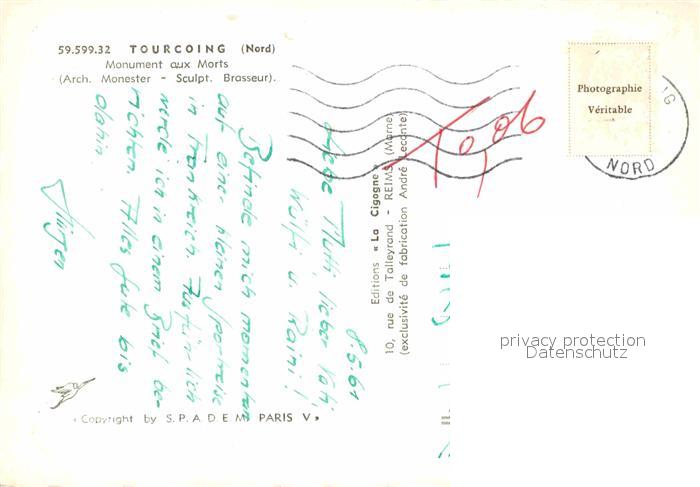 59.599.32 TOURCOING (Nord)
Monument aux Morts
(Arch. Monester - Sculpt. Brasseur).
8.5.61
Liebe Mutti, lieber Vati,
Wolfi u. Raini!
Befinde mich momentan
auf einer kleinen Sportreise
in Frankreich. Ausführlich
werde ich in einem Brief be-
richten. Alles Gute bis
dahin
Jürgen
Editions « La Cigogne »
10, rue de Talleyrand - REIMS (Marne)
(exclusivité de fabrication André Leconte)
Photographie
Véritable
NORD
privacy protection
Datenschutz
« Copyright by S.P.A.D.E.M. PARIS V »